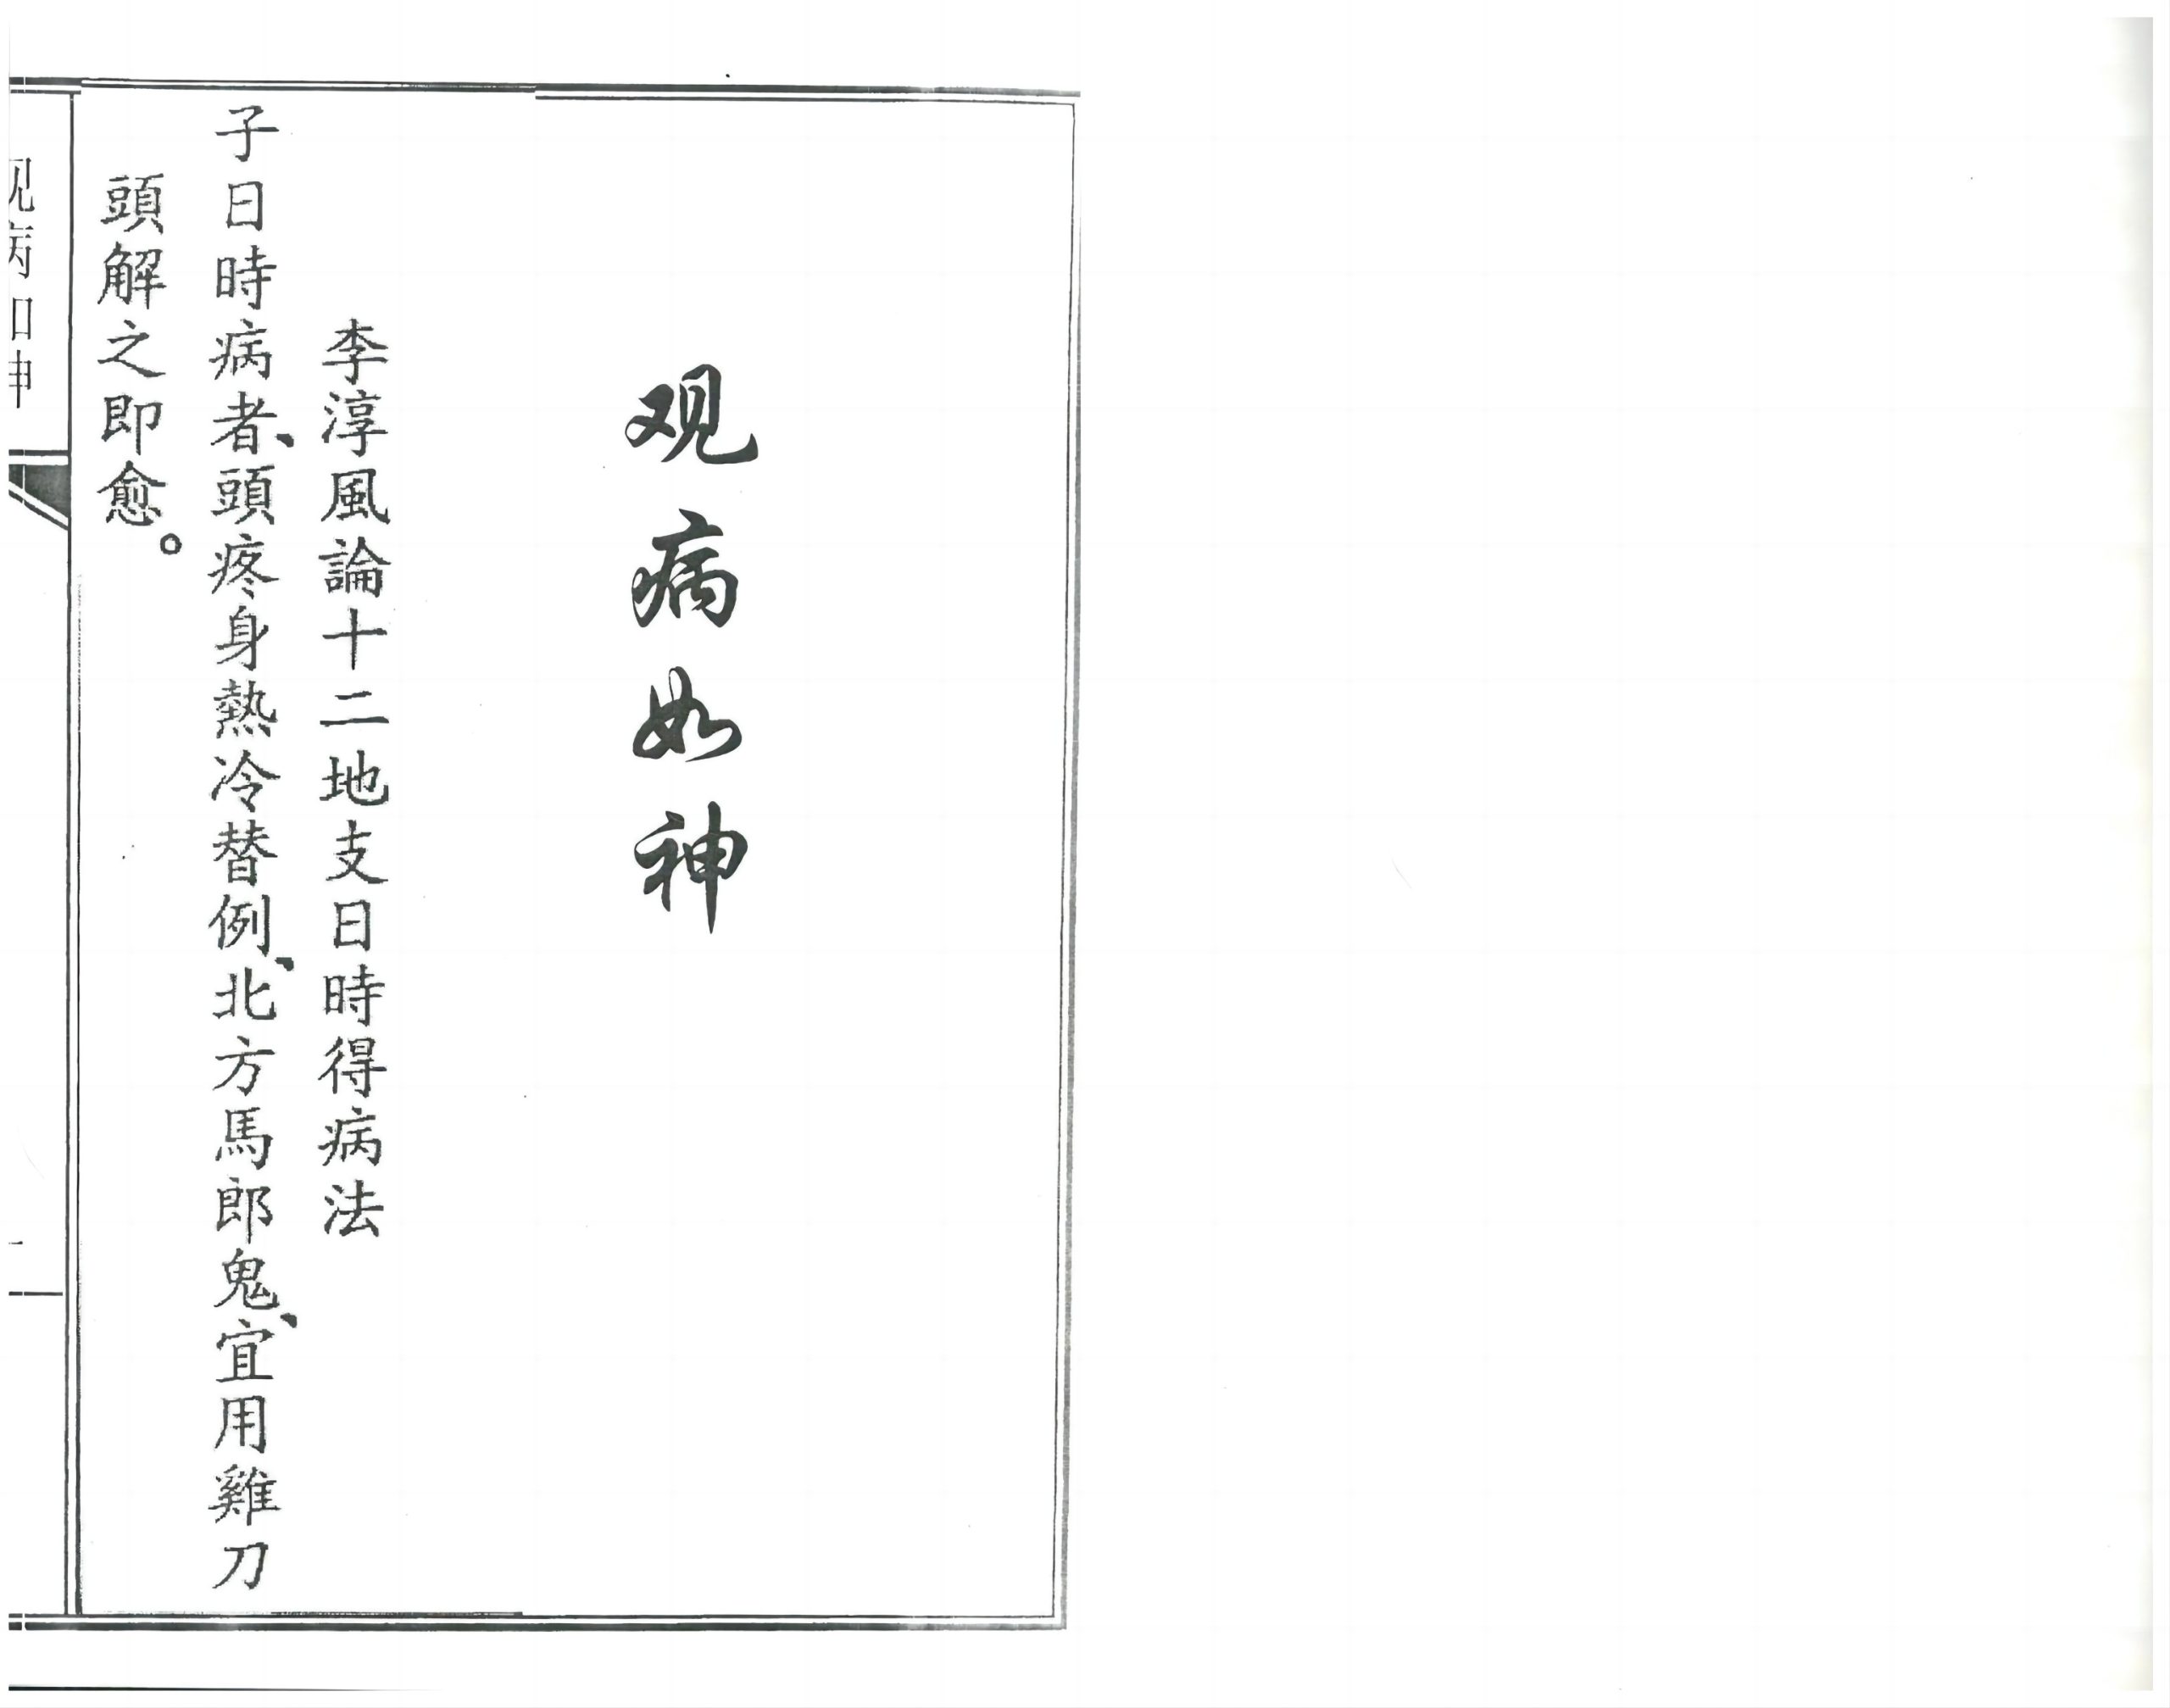 观病如神
李淳風論十二地支日時得病法
子日時病者、頭疼身熱冷替例、北方馬郎鬼、宜用雞刀
頭解之即愈。
观病如神
一